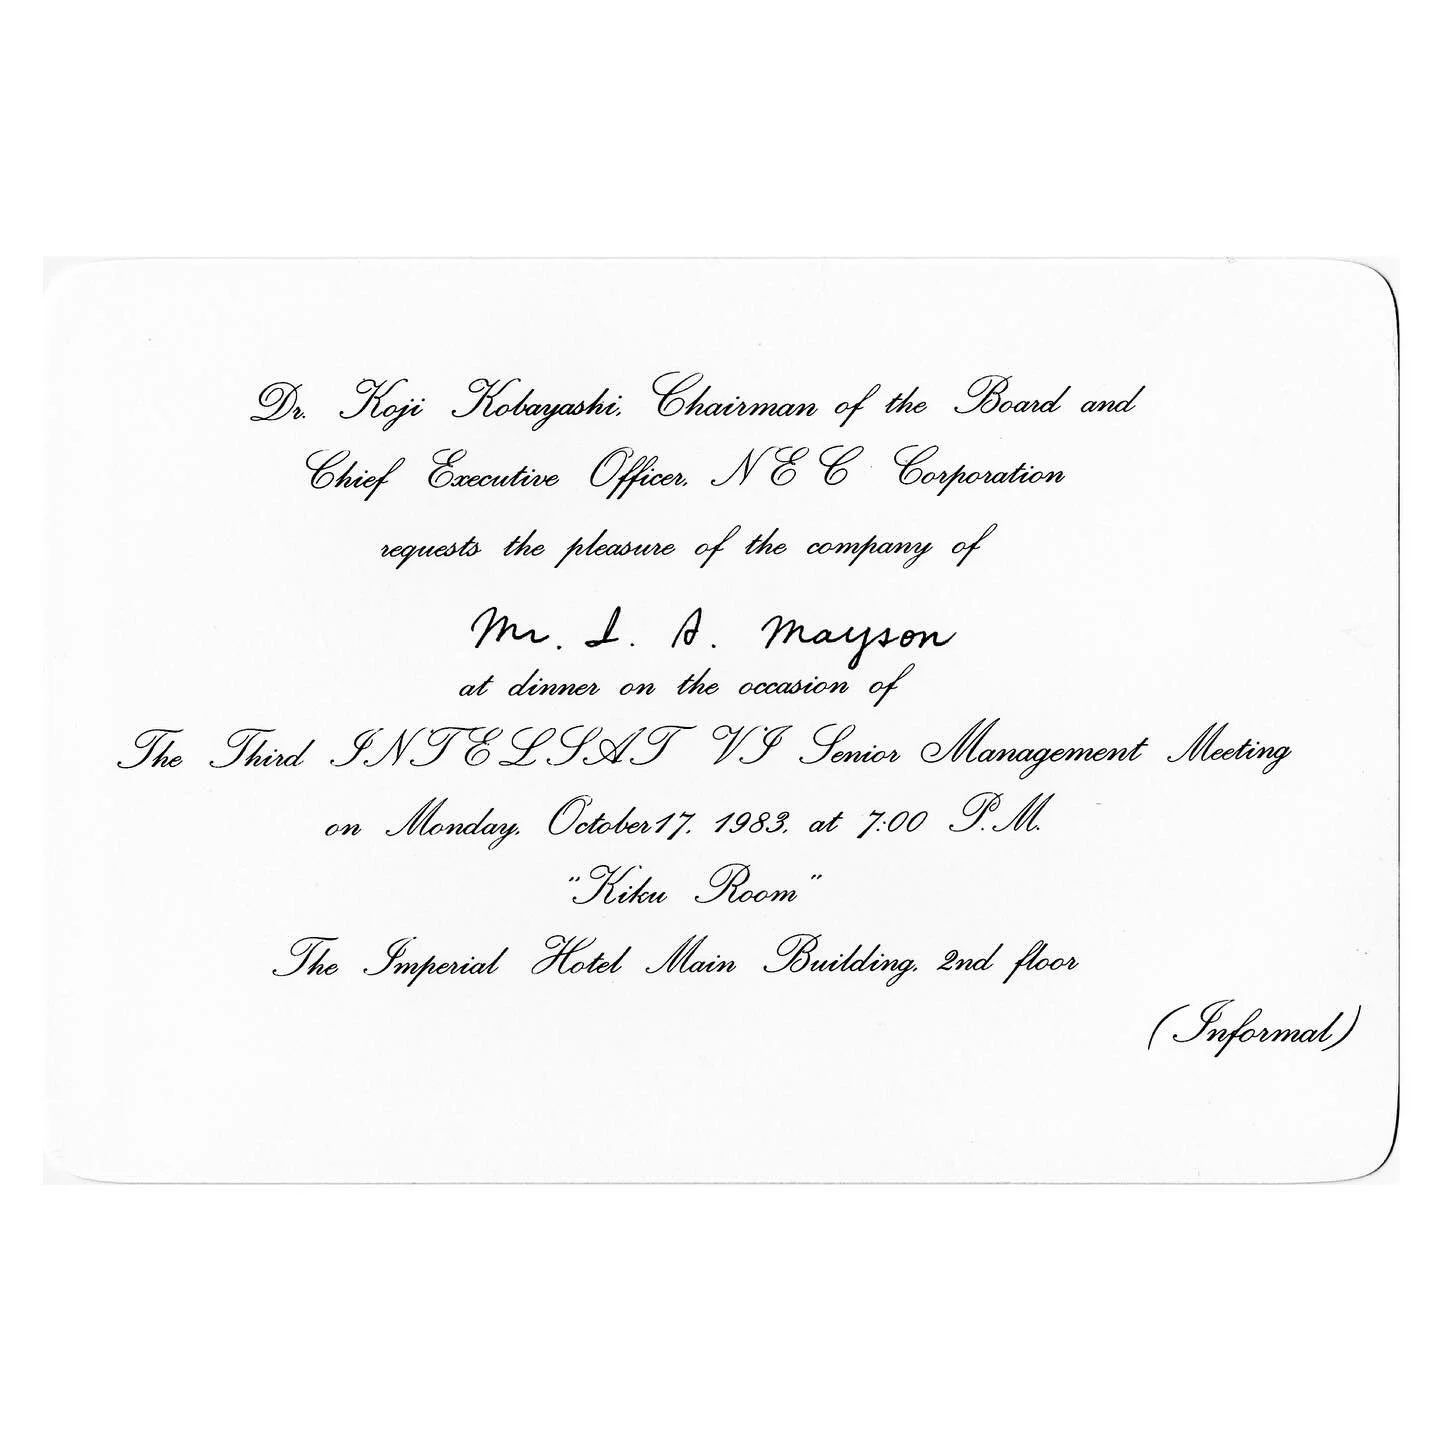 Dr. Koji Kobayashi, Chairman of the Board and
Chief Executive Officer, NEC Corporation
requests the pleasure of the company of
Mr. I. A. Mayson
at dinner on the occasion of
The Third INTELSAT VI Senior Management Meeting
on Monday, October 17, 1983, at 7:00 P.M.
"Kiku Room"
The Imperial Hotel Main Building, 2nd floor
(Informal)